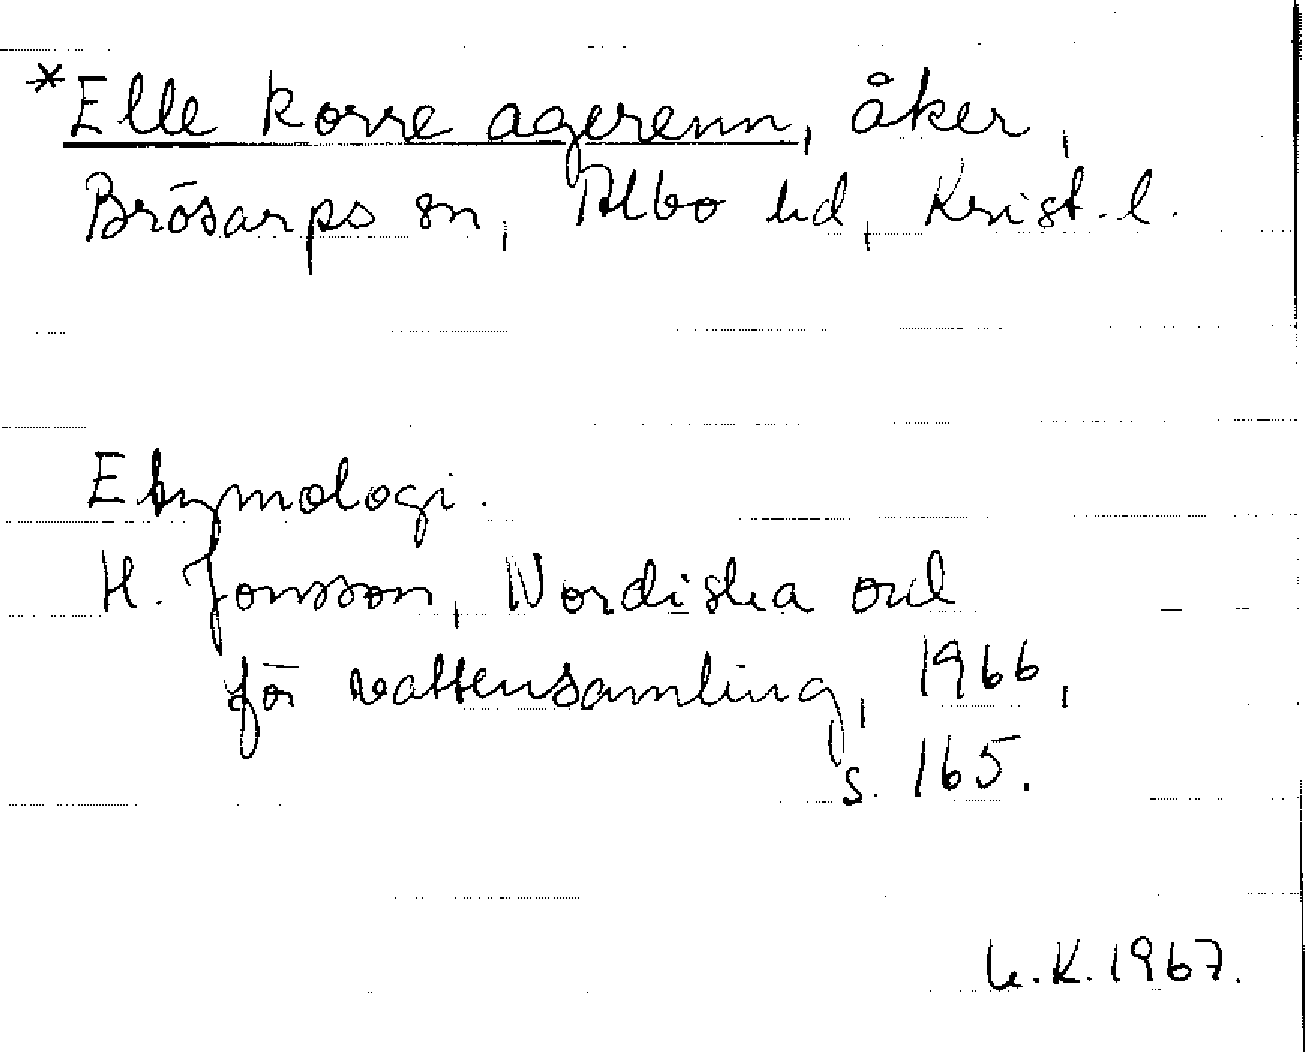 *Elle korre agerenn, åker,
Brösarps sn, Albo hd, Krist. l.
Etymologi.
H. Jonsson, Nordiska ord
för vattensamling, 1966,
s. 165.
U.K. 1967.